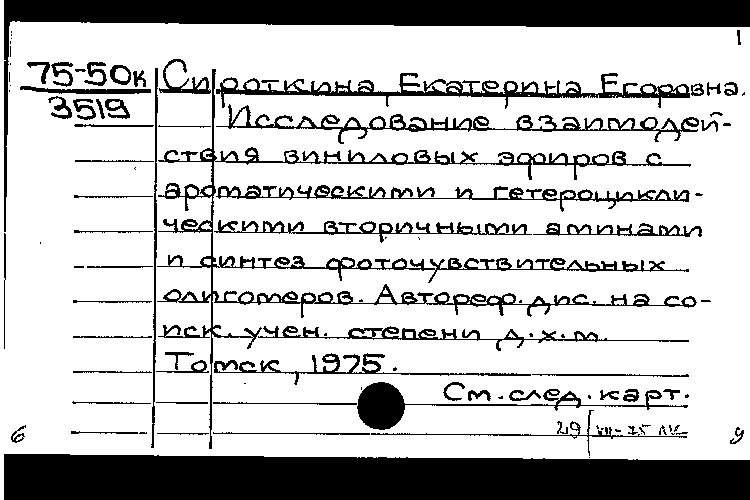 1
75-50к
3519
Сироткина Екатерина Егоровна.
Исследование взаимодей-
ствия виниловых эфиров с
ароматическими и гетероцикли-
ческими вторичными аминами
и синтез фоточувствительных
олигомеров. Автореф. дис. на со-
иск. учен. степени д.х.м.
Томск, 1975.
См. след. карт.
29
6